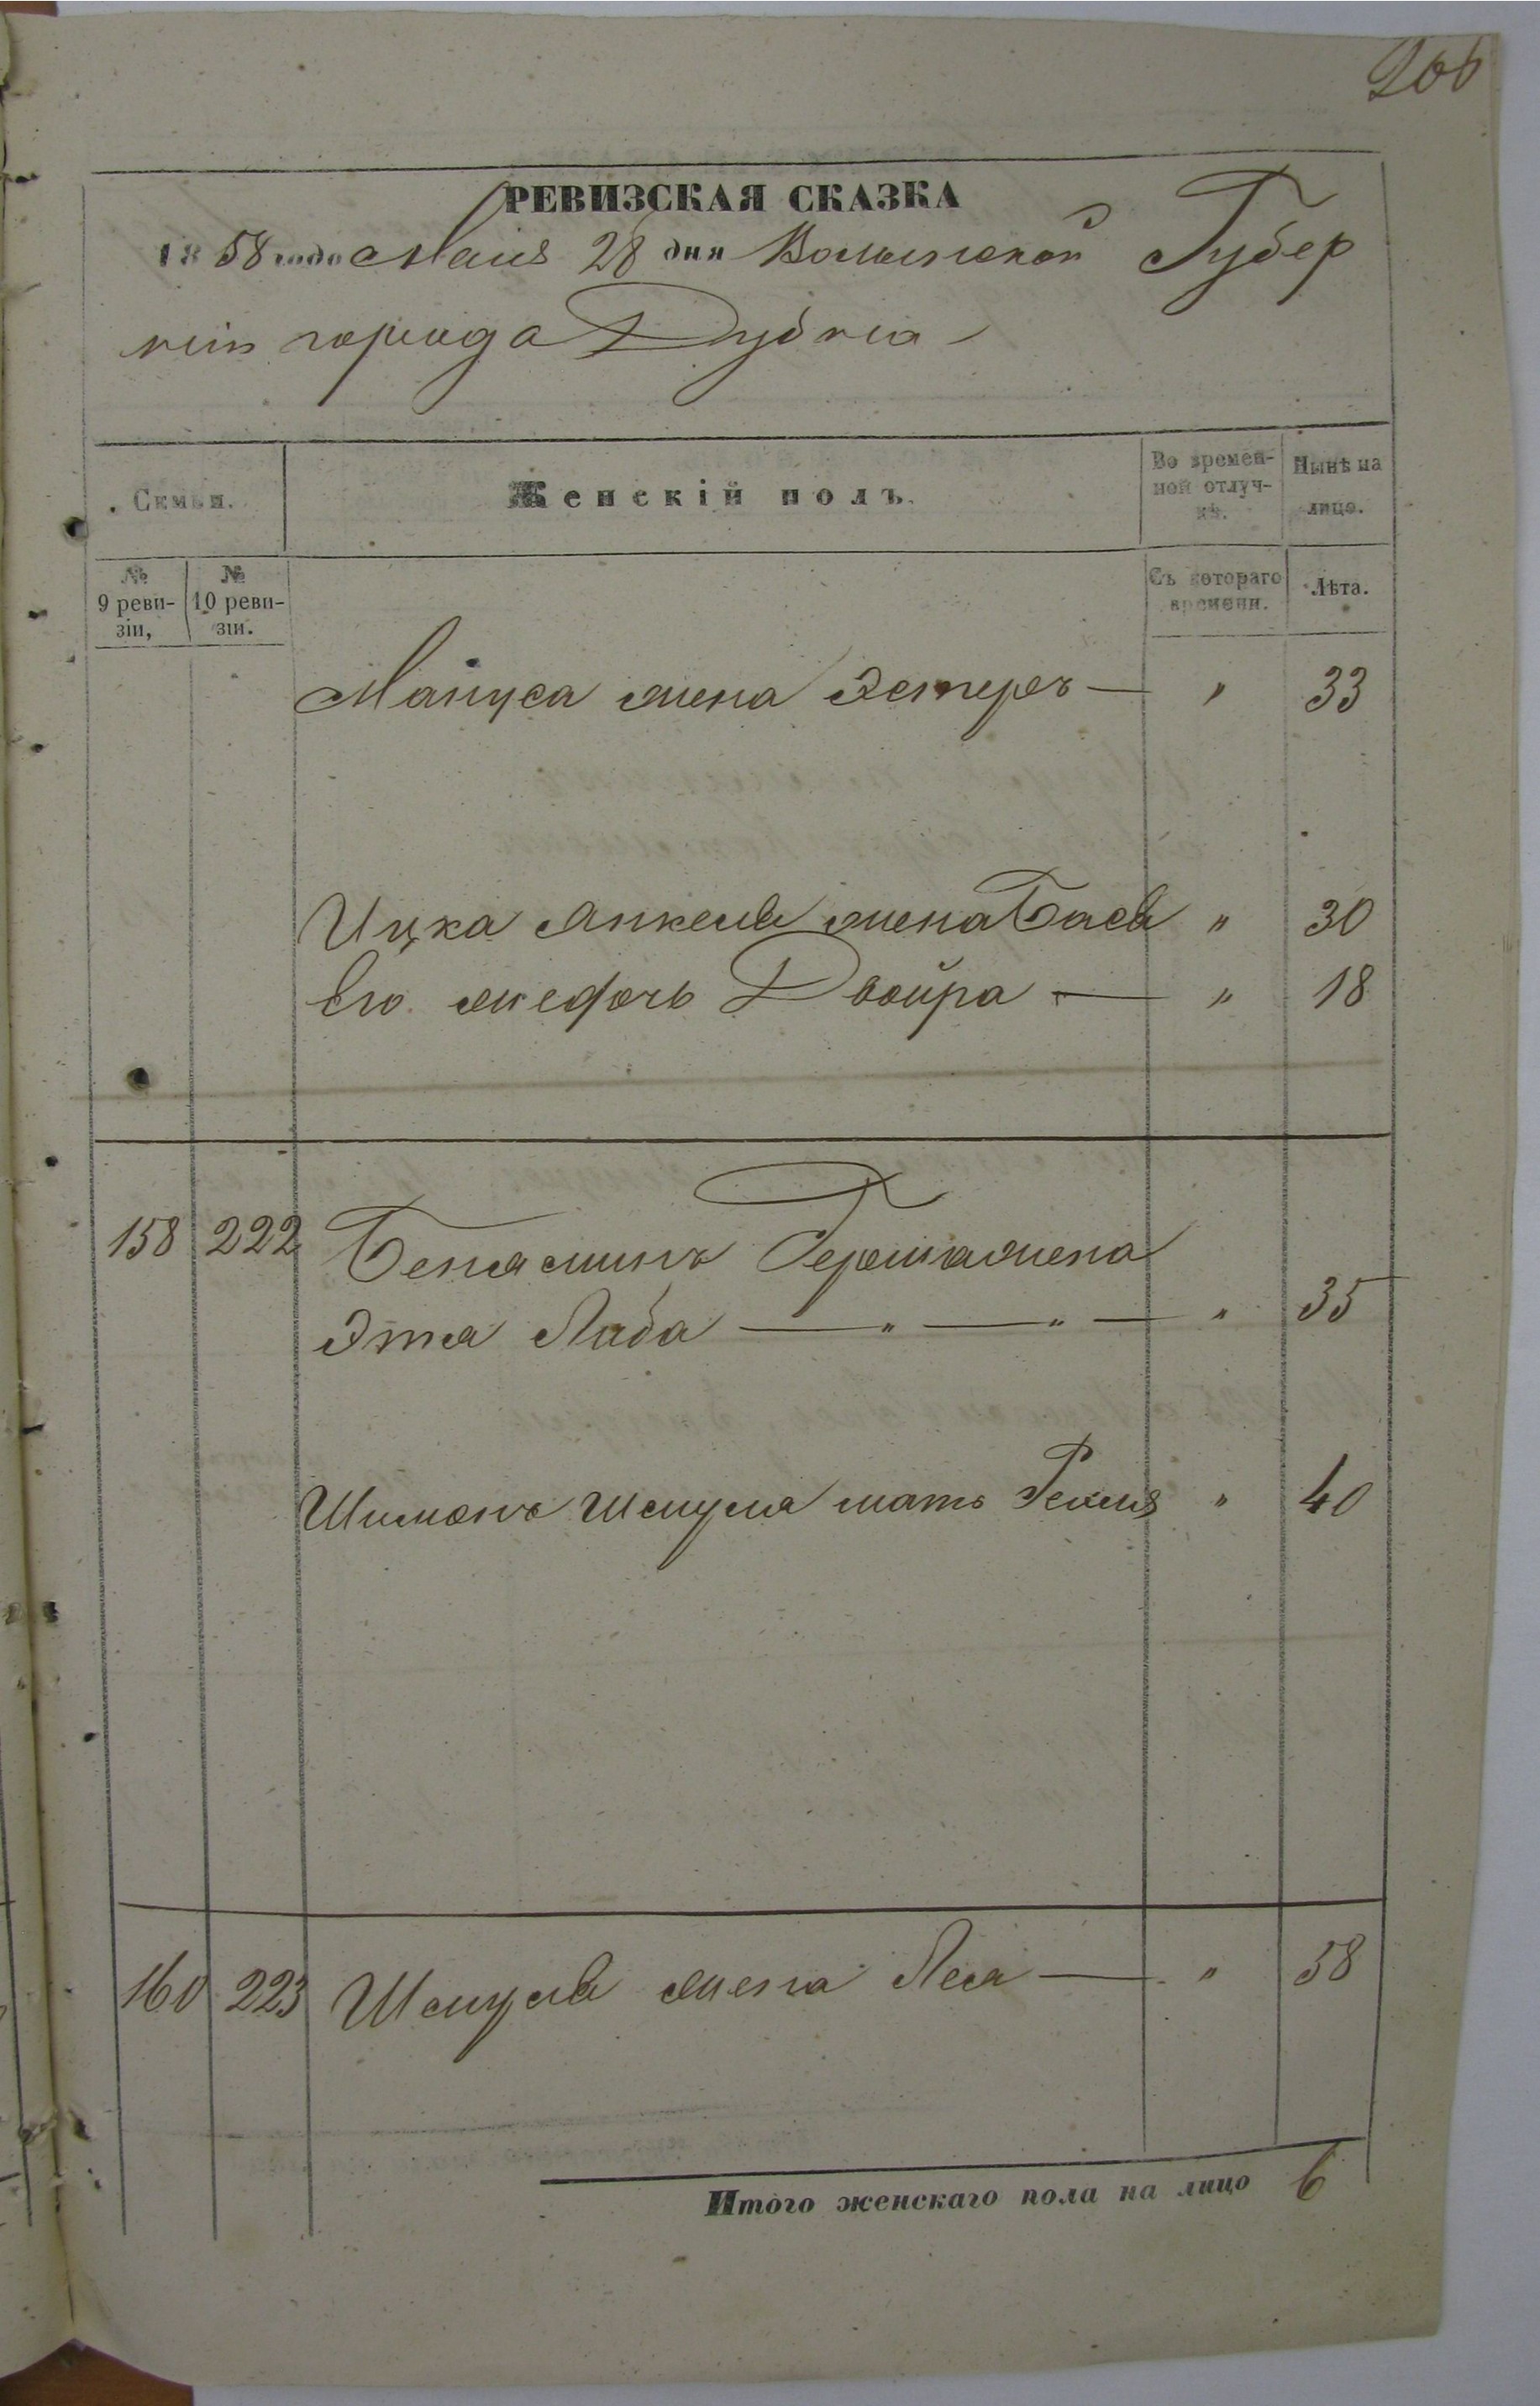 206
РЕВИЗСКАЯ СКАЗКА
1858 года Маія 28 дня Волынской Губер
ніи города Дубна
Семьи.
Женскій полъ.
Во времен-
ной отлуч-
кѣ.
Нынѣ на
лицо.
№
9 реви-
зіи,
№
10 реви-
зіи.
Съ котораго
времени.
Лѣта.
Мануса жена Эстеръ — " 33
Ицка Янкеля жена Бася " 30
Его дочь Двойра — " 18
158 222 Беняминъ Герша жена
Этя Либа — " — " — " 35
Шимонъ Шмуля мать " 40
160 223 Шмуля жена Лея — " 58
Итого женскаго пола на лицо 6